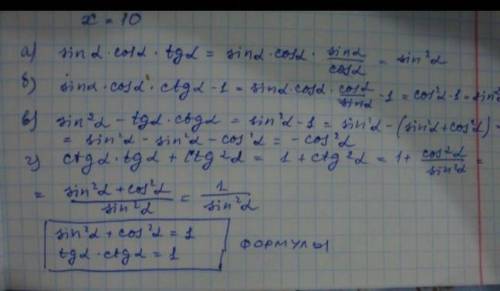 x = 10
а) sinα·cosα·tgα = sinα·cosα·sinα/cosα = sin²α
б) sinα·cosα·ctgα-1 = sinα·cosα·cosα/sinα-1 = cos²α-1 = sin²
в) sin²α - tgα·ctgα = sin²α-1 = sin²α-(sin²α+cos²α)
= sin²α-sin²α-cos²α = -cos²α
г) ctgα·tgα + ctg²α = 1 + ctg²α = 1 + cos²α/sin²α =
= sin²α + cos²α/sin²α = 1/sin²α
sin²α + cos²α = 1
tgα·ctgα = 1
ФОРМУЛЫ